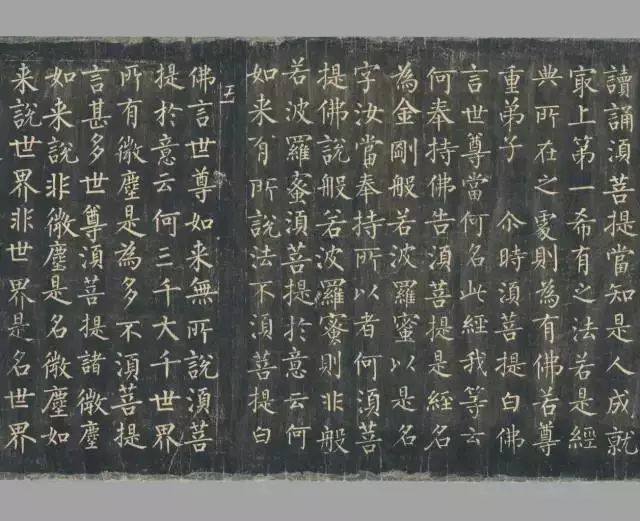 讀誦須菩提當知是人成就
㝡上第一希有之法若是經
典所在之處則為有佛若尊
重弟子 尒時須菩提白佛
言世尊當何名此經我等云
何奉持佛告須菩提是經名
為金剛般若波羅蜜以是名
字汝當奉持所以者何須菩
提佛說般若波羅蜜則非般
若波羅蜜須菩提於意云何
如来有所說法不須菩提白
佛言世尊如来無所說須菩
提於意云何三千大千世界
所有微塵是為多不須菩提
言甚多世尊須菩提諸微塵
如来說非微塵是名微塵如
来說世界非世界是名世界